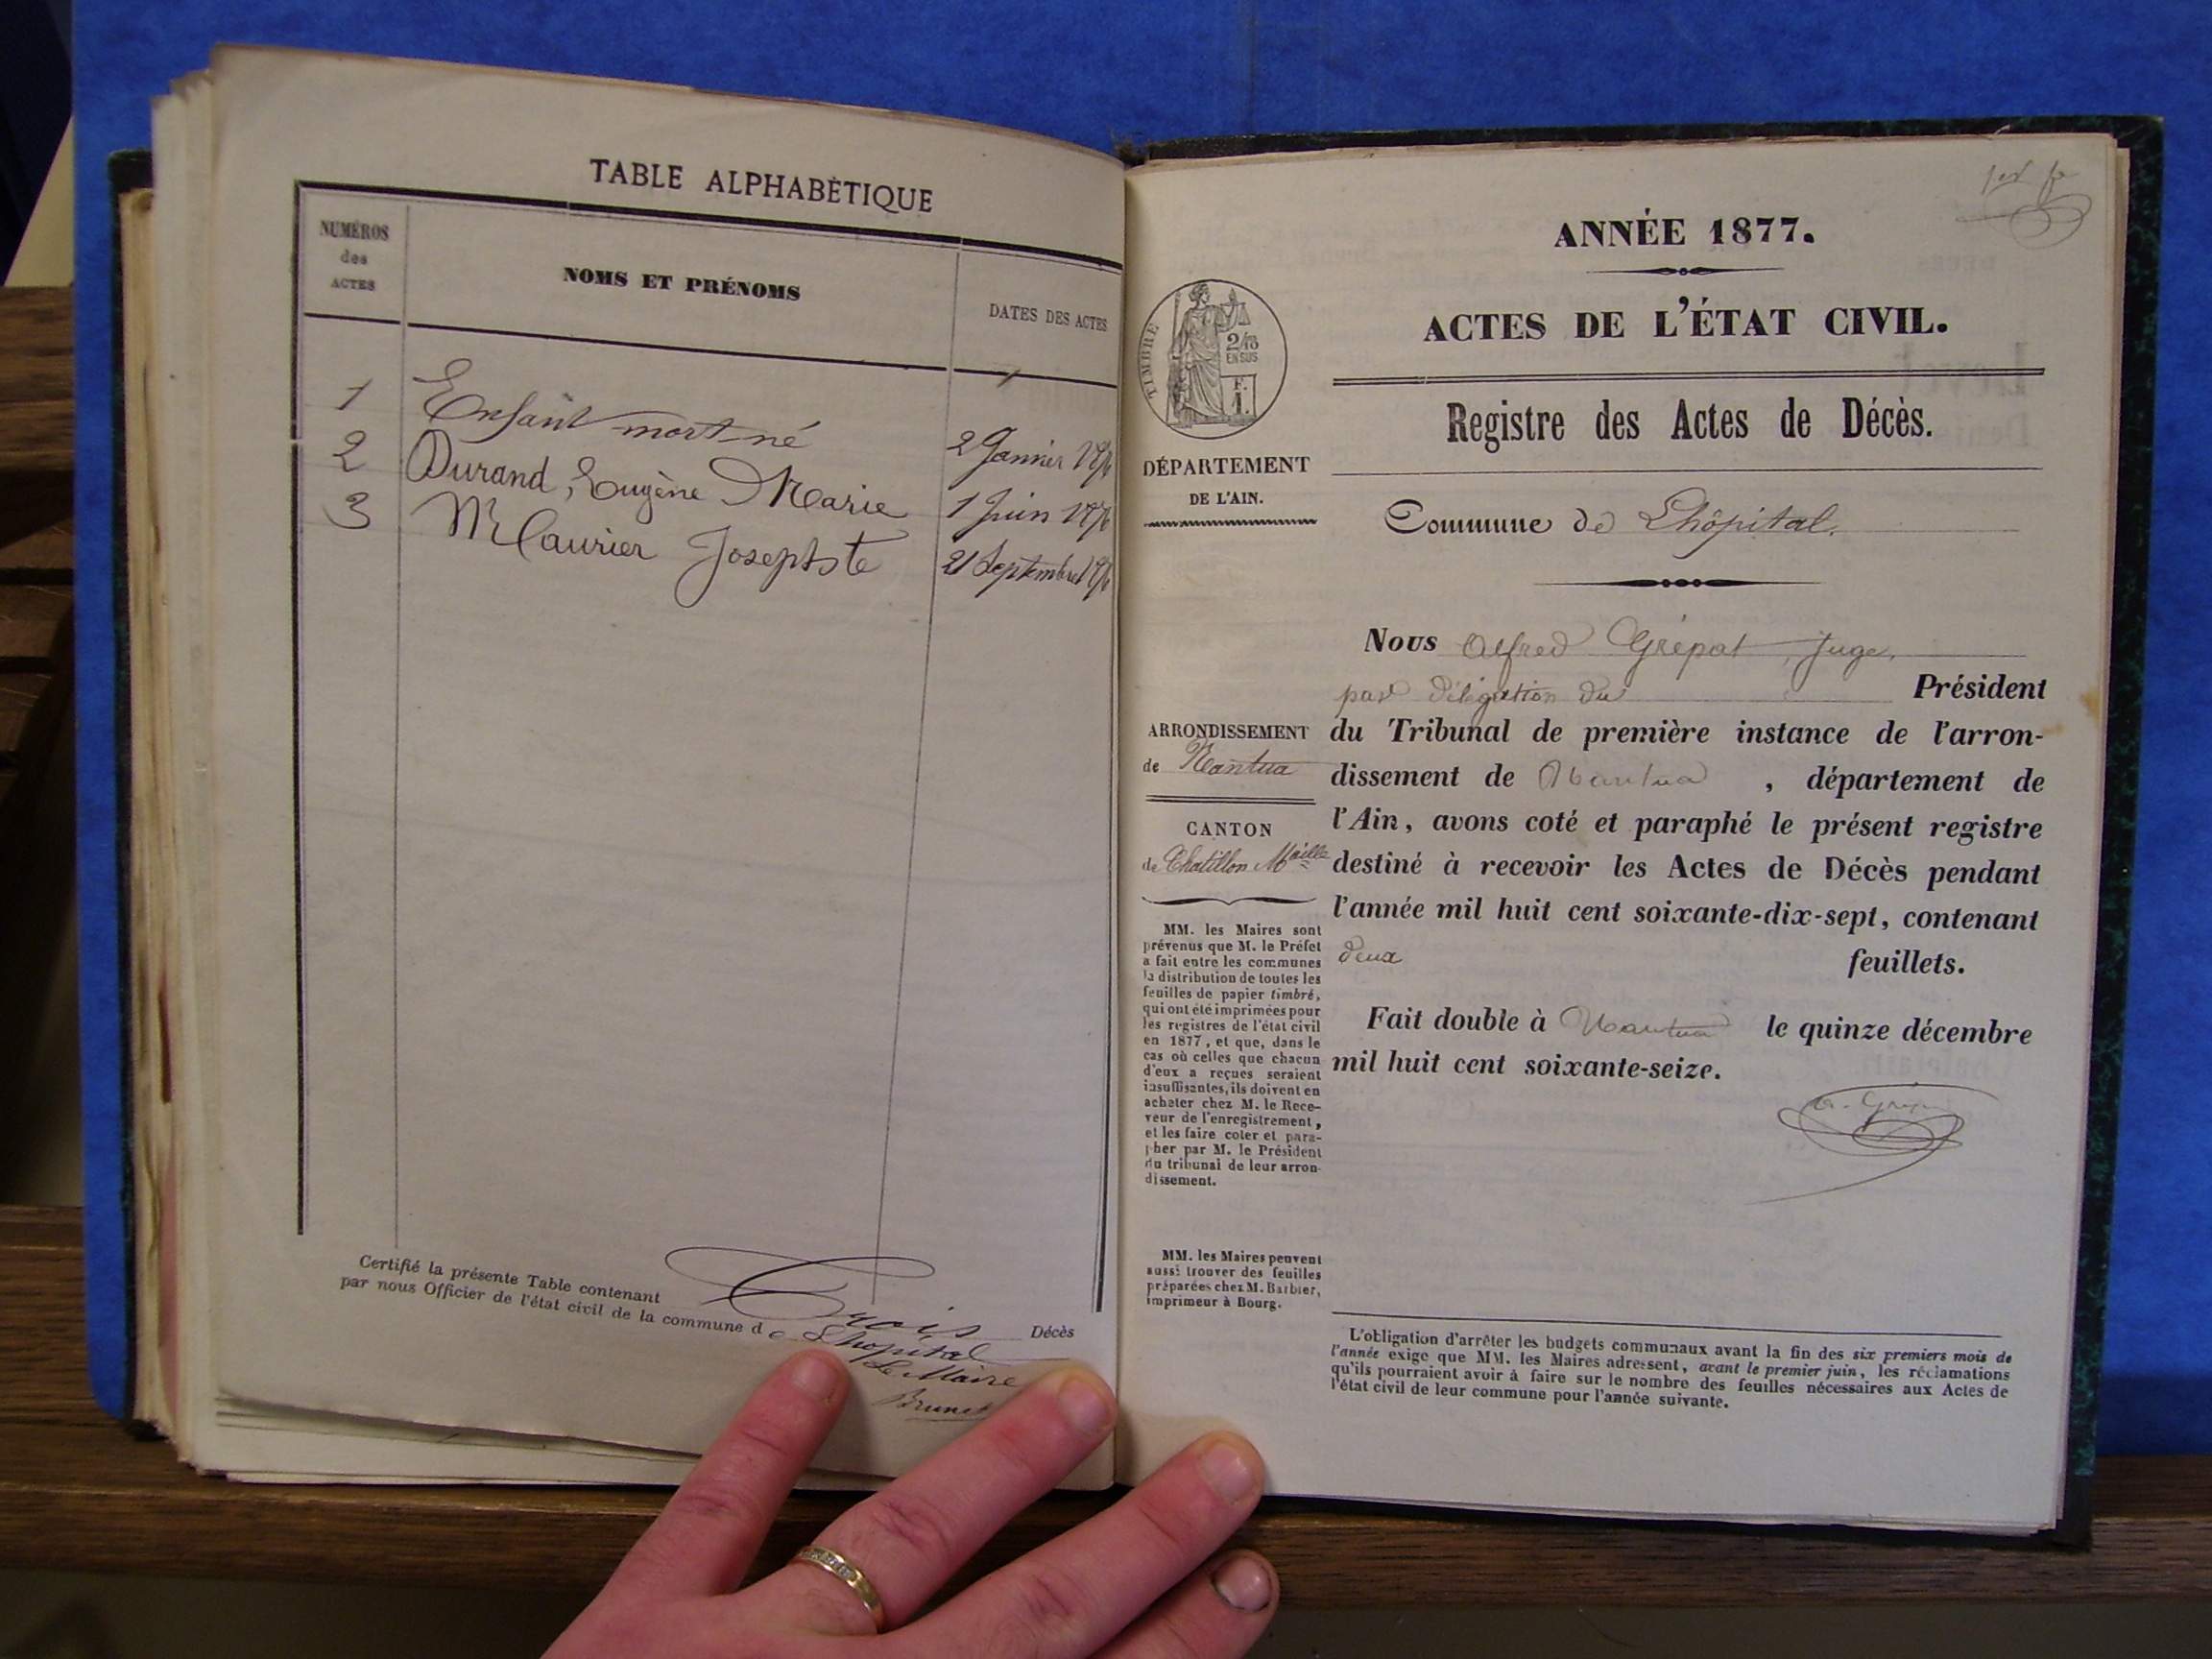 TABLE ALPHABÈTIQUE
NUMÉROS
des
ACTES
NOMS ET PRÉNOMS
DATES DES ACTES
1 Enfant mort-né 2 Janvier
2 Durand, Eugène Marie 1 Juin
3 Laurier 21 Septembre
Certifié la présente Table contenant Trois Décès
par nous Officier de l'état civil de la commune de Lhôpital
Le Maire
Brunet
ANNÉE 1877.
ACTES DE L'ÉTAT CIVIL.
TIMBRE
2/10
EN SUS
F.
1.
Registre des Actes de Décès.
DÉPARTEMENT
DE L'AIN.
Commune de Lhôpital.
Nous Alfred Grépat, Juge,
par délégation du Président
du Tribunal de première instance de l'arron-
dissement de Nantua, département de
l'Ain, avons coté et paraphé le présent registre
destiné à recevoir les Actes de Décès pendant
l'année mil huit cent soixante-dix-sept, contenant
deux feuillets.
Fait double à Nantua le quinze décembre
mil huit cent soixante-seize.
ARRONDISSEMENT
de Nantua
CANTON
de Chatillon Maille
MM. les Maires sont
prévenus que M. le Préfet
a fait entre les communes
la distribution de toutes les
feuilles de papier timbré,
qui ont été imprimées pour
les registres de l'état civil
en 1877, et que, dans le
cas où celles que chacun
d'eux a reçues seraient
insuffisantes, ils doivent en
acheter chez M. le Rece-
veur de l'enregistrement,
et les faire coter et para-
pher par M. le Président
du tribunal de leur arron-
dissement.
MM. les Maires peuvent
aussi trouver des feuilles
préparées chez M. Barbier,
imprimeur à Bourg.
L'obligation d'arrêter les budgets communaux avant la fin des six premiers mois de
l'année exige que MM. les Maires adressent, avant le premier juin, les réclamations
qu'ils pourraient avoir à faire sur le nombre des feuilles nécessaires aux Actes de
l'état civil de leur commune pour l'année suivante.